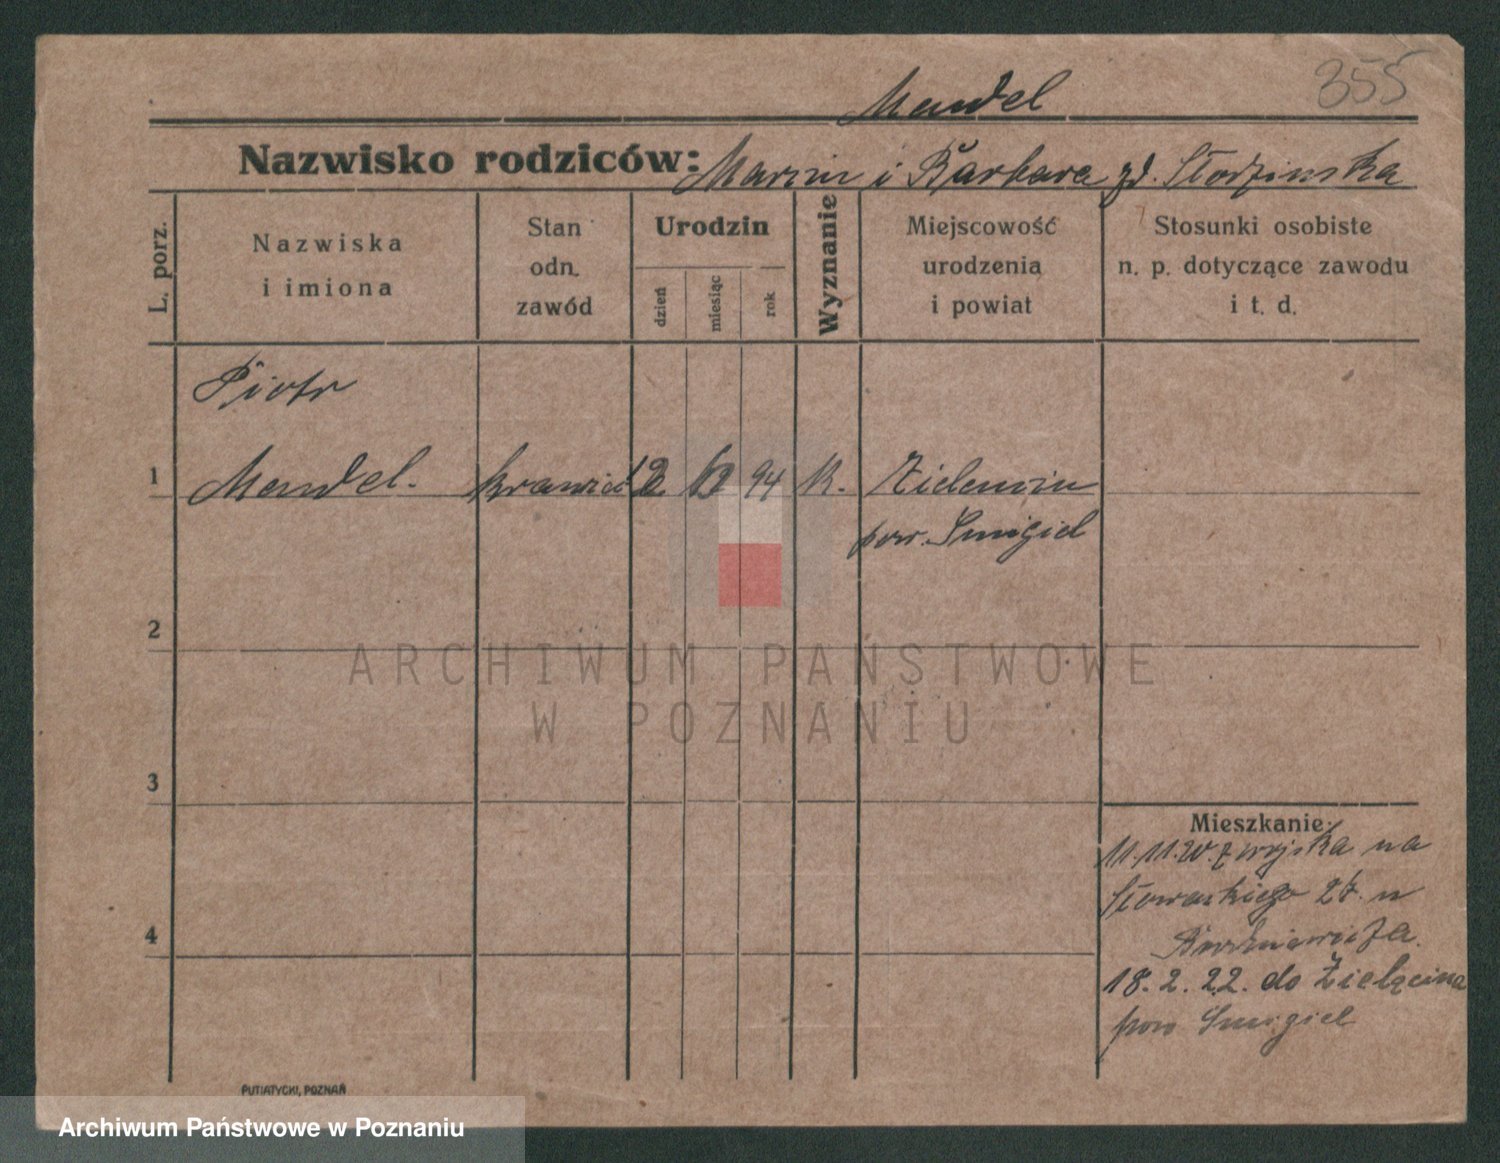 355
Mendel
Nazwisko rodziców: Marcin i Barbara zd. Słodzinska
L. porz.
Nazwiska i imiona
Stan odn. zawód
Urodzin
dzień
miesiąc
rok
Wyznanie
Miejscowość urodzenia i powiat
Stosunki osobiste n. p. dotyczące zawodu i t. d.
Piotr
1 Mendel. krawiec 94 k.
pow. Smigiel
2
3
4
Mieszkanie:
11.11.20. z wojska na
Słowackiego 27. u
18.2.22. do Zielęcina
pow Smigiel
PUTIATYCKI, POZNAŃ
ARCHIWUM PAŃSTWOWE
W POZNANIU
Archiwum Państwowe w Poznaniu